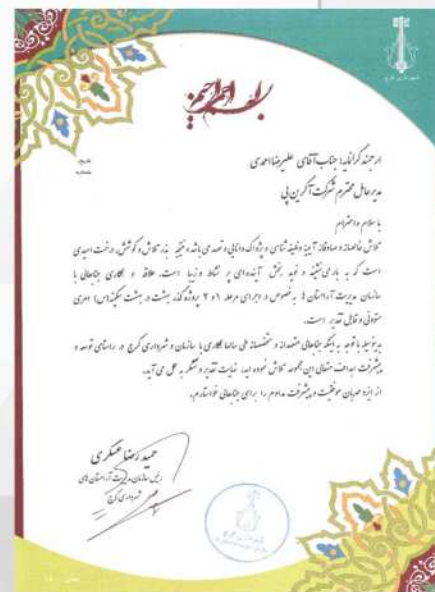 بسم الله الرحمن الرحیم
تاریخ:
شماره:
ارجمند گرانمایه جناب آقای علیرضا احمدی
مدیر عامل محترم شرکت آگرین پی
با سلام و احترام
تلاش خالصانه و صادقانه آیینه وظیفه شناسی و پژواک دانایی و تعهد می باشد، نتیجه بذر تلاش و کوشش، درخت امیدی
است که به بار می نشیند و نوید بخش آینده ای پر نشاط و زیبا است. علاقه و همکاری جنابعالی با
سازمان مدیریت آرامستان ها بخصوص در اجرای مرحله ۱ و ۲ پروژه گذر بهشت در بهشت سکینه (س) امری
ستودنی و قابل تقدیر است.
بدینوسیله با توجه به اینکه جنابعالی متعهدانه و متخصصانه طی سالها همکاری با سازمان و شهرداری کرج در راستای توسعه و
پیشرفت اهداف متعالی این مجموعه تلاش نموده اید، نهایت تقدیر و تشکر به عمل می آید.
از ایزد مهربان موفقیت و پیشرفت مداوم را برای جنابعالی خواستارم.
حمیدرضا عسکری
رئیس سازمان مدیریت آرامستان های
شهرداری کرج